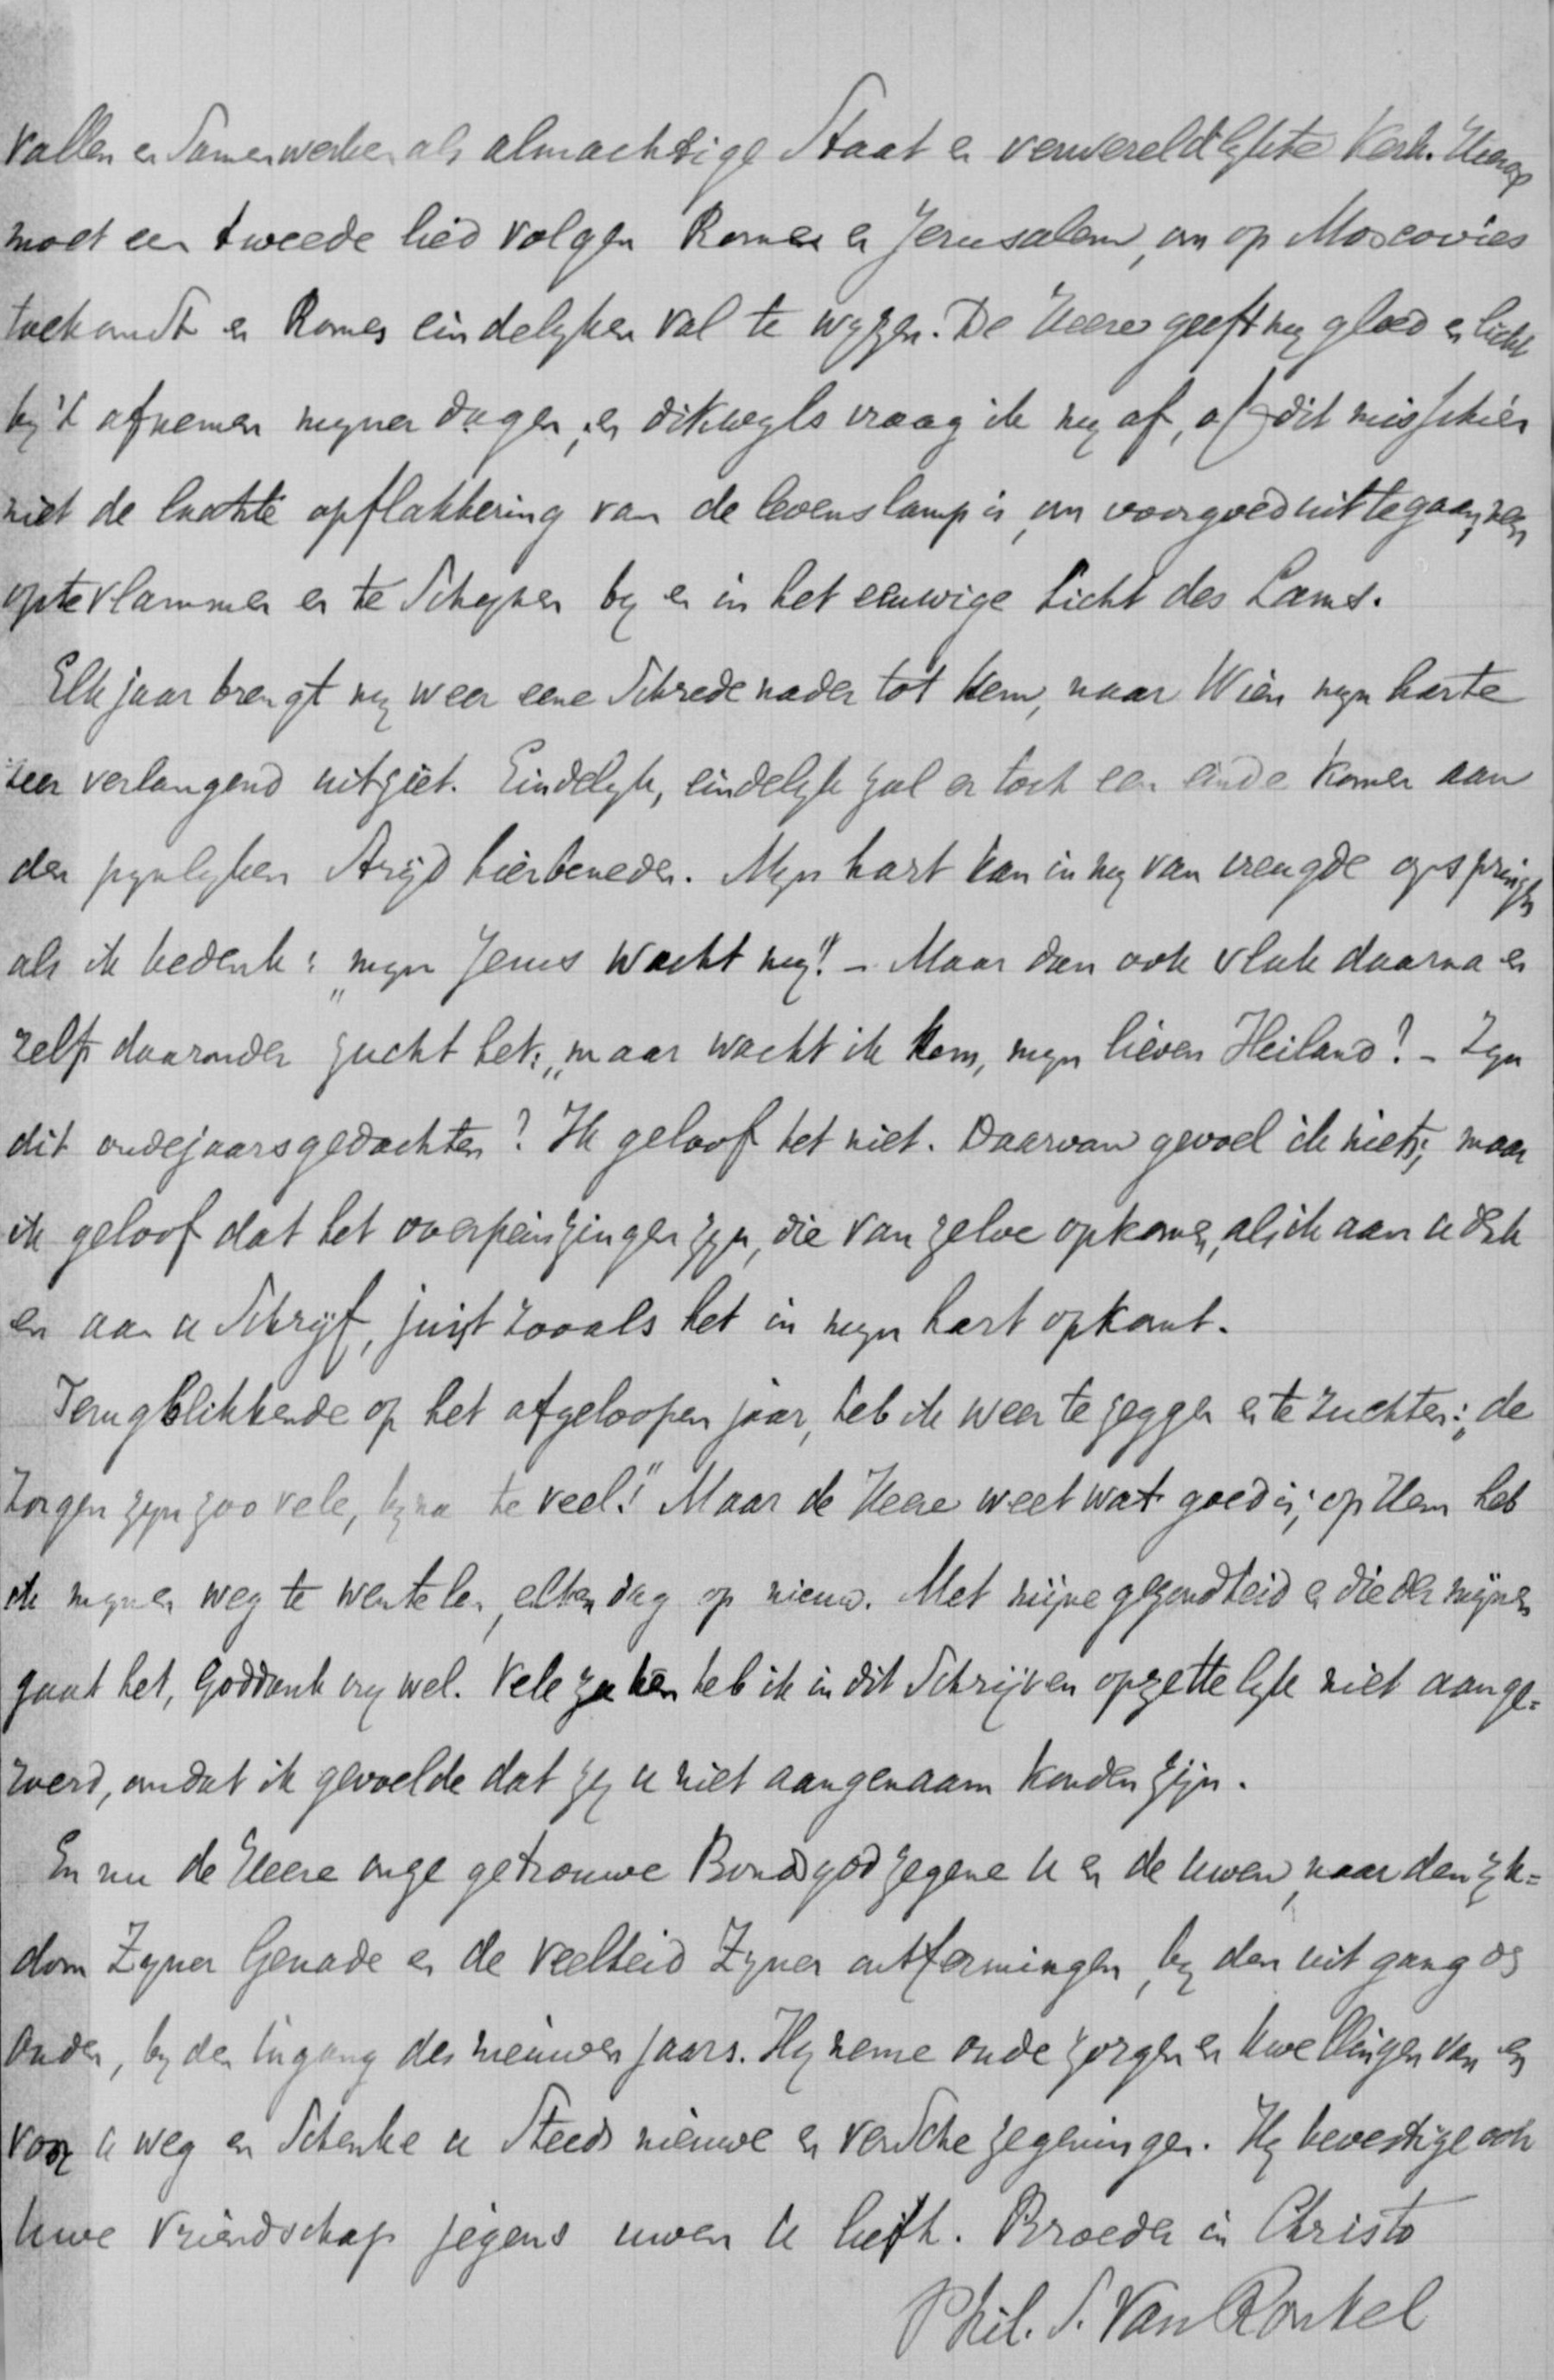 vallen en Samenwerken als almachtige Staat en verwereldlykte Kerk. Hierop
moet een tweede lied volgen Rome en Jerusalem, om op Moscovies
toekomst en Romes eindelyken val te wyzen. De Heere geeft my gloed en licht
by 't afnemen myner dagen, en dikwyls vraag ik my af, of dit misschien
niet de laatste opflakkering van de levenslamp is, om voorgoed uittegaan, neen
optevlammen en te Schynen by en in het eeuwige Licht des Lams.
Elk jaar brengt my weer eene Schrede nader tot Hem, naar Wien myn harte
zeer verlangend uitziet. Eindelyk, eindelyk zal er toch een einde komen aan
den pynlyken Stryd hierbeneden. Myn hart kan in my van vreugde opspringen
als ik bedenk: „myn Jezus wacht my!" – Maar dan ook vlak daarna en
zelfs daaronder zucht het: „maar wacht ik Hem, myn lieven Heiland? – Zyn
dit oudejaarsgedachten? Ik geloof het niet. Daarvan gevoel ik niets; maar
ik geloof dat het overpeinzingen zyn, die van zelve opkomen, als ik aan u denk
en aan u Schryf, juist zooals het in myn hart opkomt.
Terugblikkende op het afgeloopen jaar, heb ik weer te zeggen en te zuchten: „de
Zorgen zyn zoo vele, byna te veel!" Maar de Heere weet wat goed is; op Hem heb
ik mynen weg te wentelen, elken dag op nieuw. Met mijne gezondheid en die der mijnen
gaat het, Goddank vry wel. Vele zaken heb ik in dit Schrijven opzettelyk niet aange=
roerd, omdat ik gevoelde dat zy u niet aangenaam konden zijn.
En nu de Heere onze getrouwe Bondsgod zegene u en de uwen, naar den ryk=
dom Zyner Genade en de veelheid Zyner ontfermingen, by den uitgang des
Ouden, by den Ingang des nieuwen jaars. Hy neme oude zorgen en kwellingen van en
voor u weg en Schenke u Steeds nieuwe en versche zegeningen. Hy bevestige ook
Uwe Vriendschap jegens uwen u liefh. Broeder in Christo
Phil. S. Van Ronkel